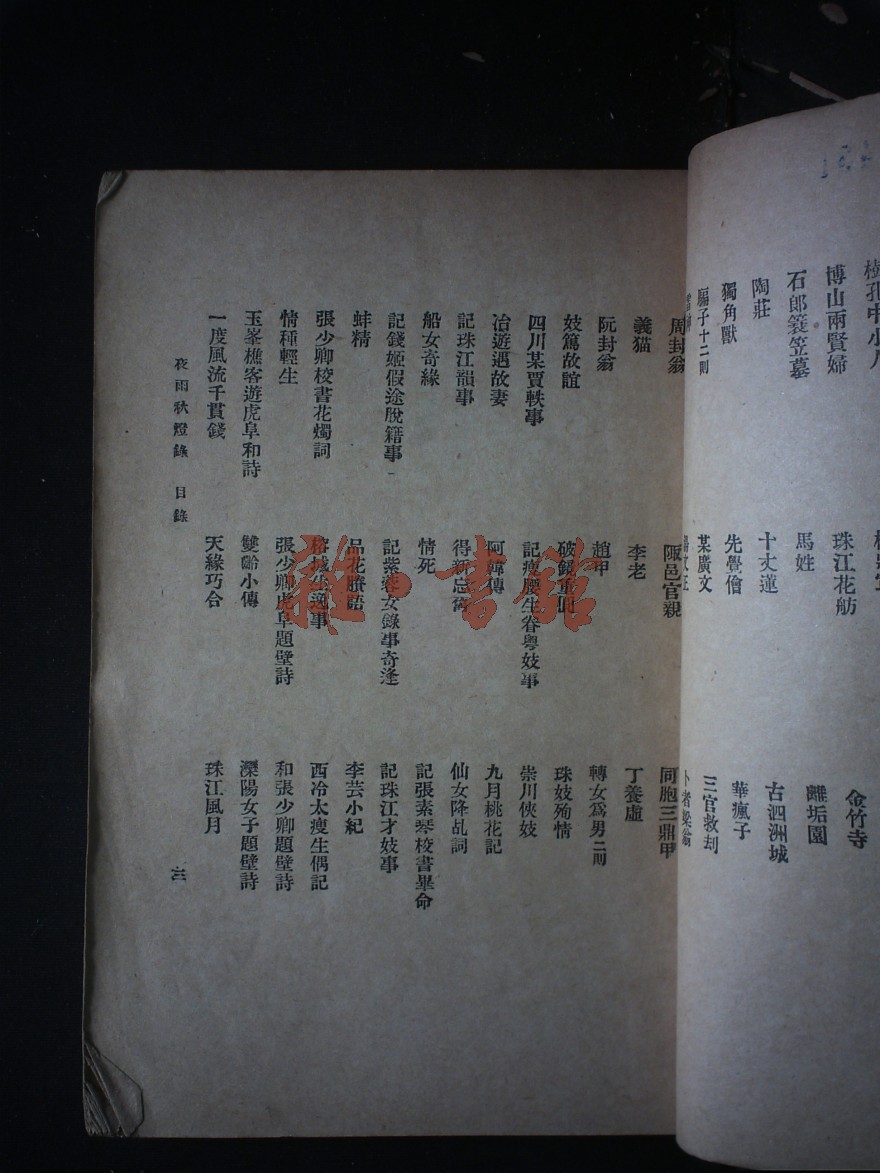 博山兩賢婦
珠江花舫
金竹寺
石郎簑笠墓
馬姓
離垢園
陶莊
十丈蓮
古泗洲城
獨角獸
先覺僧
華瘋子
騙子十二則
某廣文
三官救刦
周封翁
阪邑官親
同胞三鼎甲
義猫
李老
丁養虛
阮封翁
趙甲
轉女爲男二則
妓篤故誼
破
珠妓殉情
四川某賈軼事
記瘦腰生眷粵妓事
崇川俠妓
冶遊遇故妻
阿 傳
九月桃花記
記珠江韻事
得新忘舊
仙女降乩詞
船女奇緣
情死
記張素琴校書畢命
記錢姬假途脫籍事
記紫蓉女錄事奇逢
記珠江才妓事
蚌精
品花 語
李芸小紀
張少卿校書花燭詞
榕城 事
西冷太瘦生偶記
情種輕生
張少卿虎阜題壁詩
和張少卿題壁詩
玉峯樵客遊虎阜和詩
雙齡小傳
溧陽女子題壁詩
一度風流千貫錢
天緣巧合
珠江風月
夜雨秋燈錄 目錄
三
雜·書館